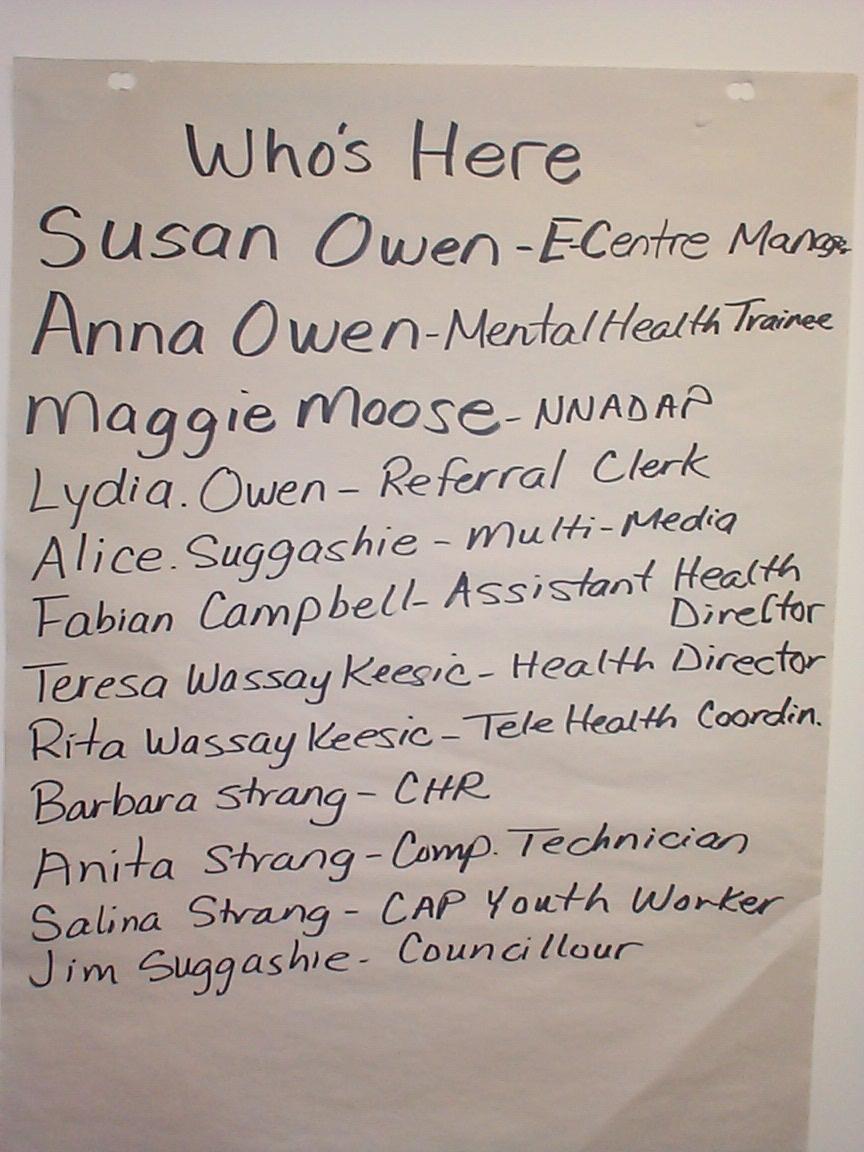 Who's Here
Susan Owen - E-Centre Manager
Anna Owen - Mental Health Trainee
Maggie Moose - NNADAP
Lydia. Owen - Referral Clerk
Alice. Suggashie - Multi-Media
Fabian Campbell - Assistant Health
Director
Teresa Wassay Keesic - Health Director
Rita Wassay Keesic - Tele Health Coordin.
Barbara Strang - CHR
Anita Strang - Comp. Technician
Salina Strang - CAP Youth Worker
Jim Suggashie - Councillour